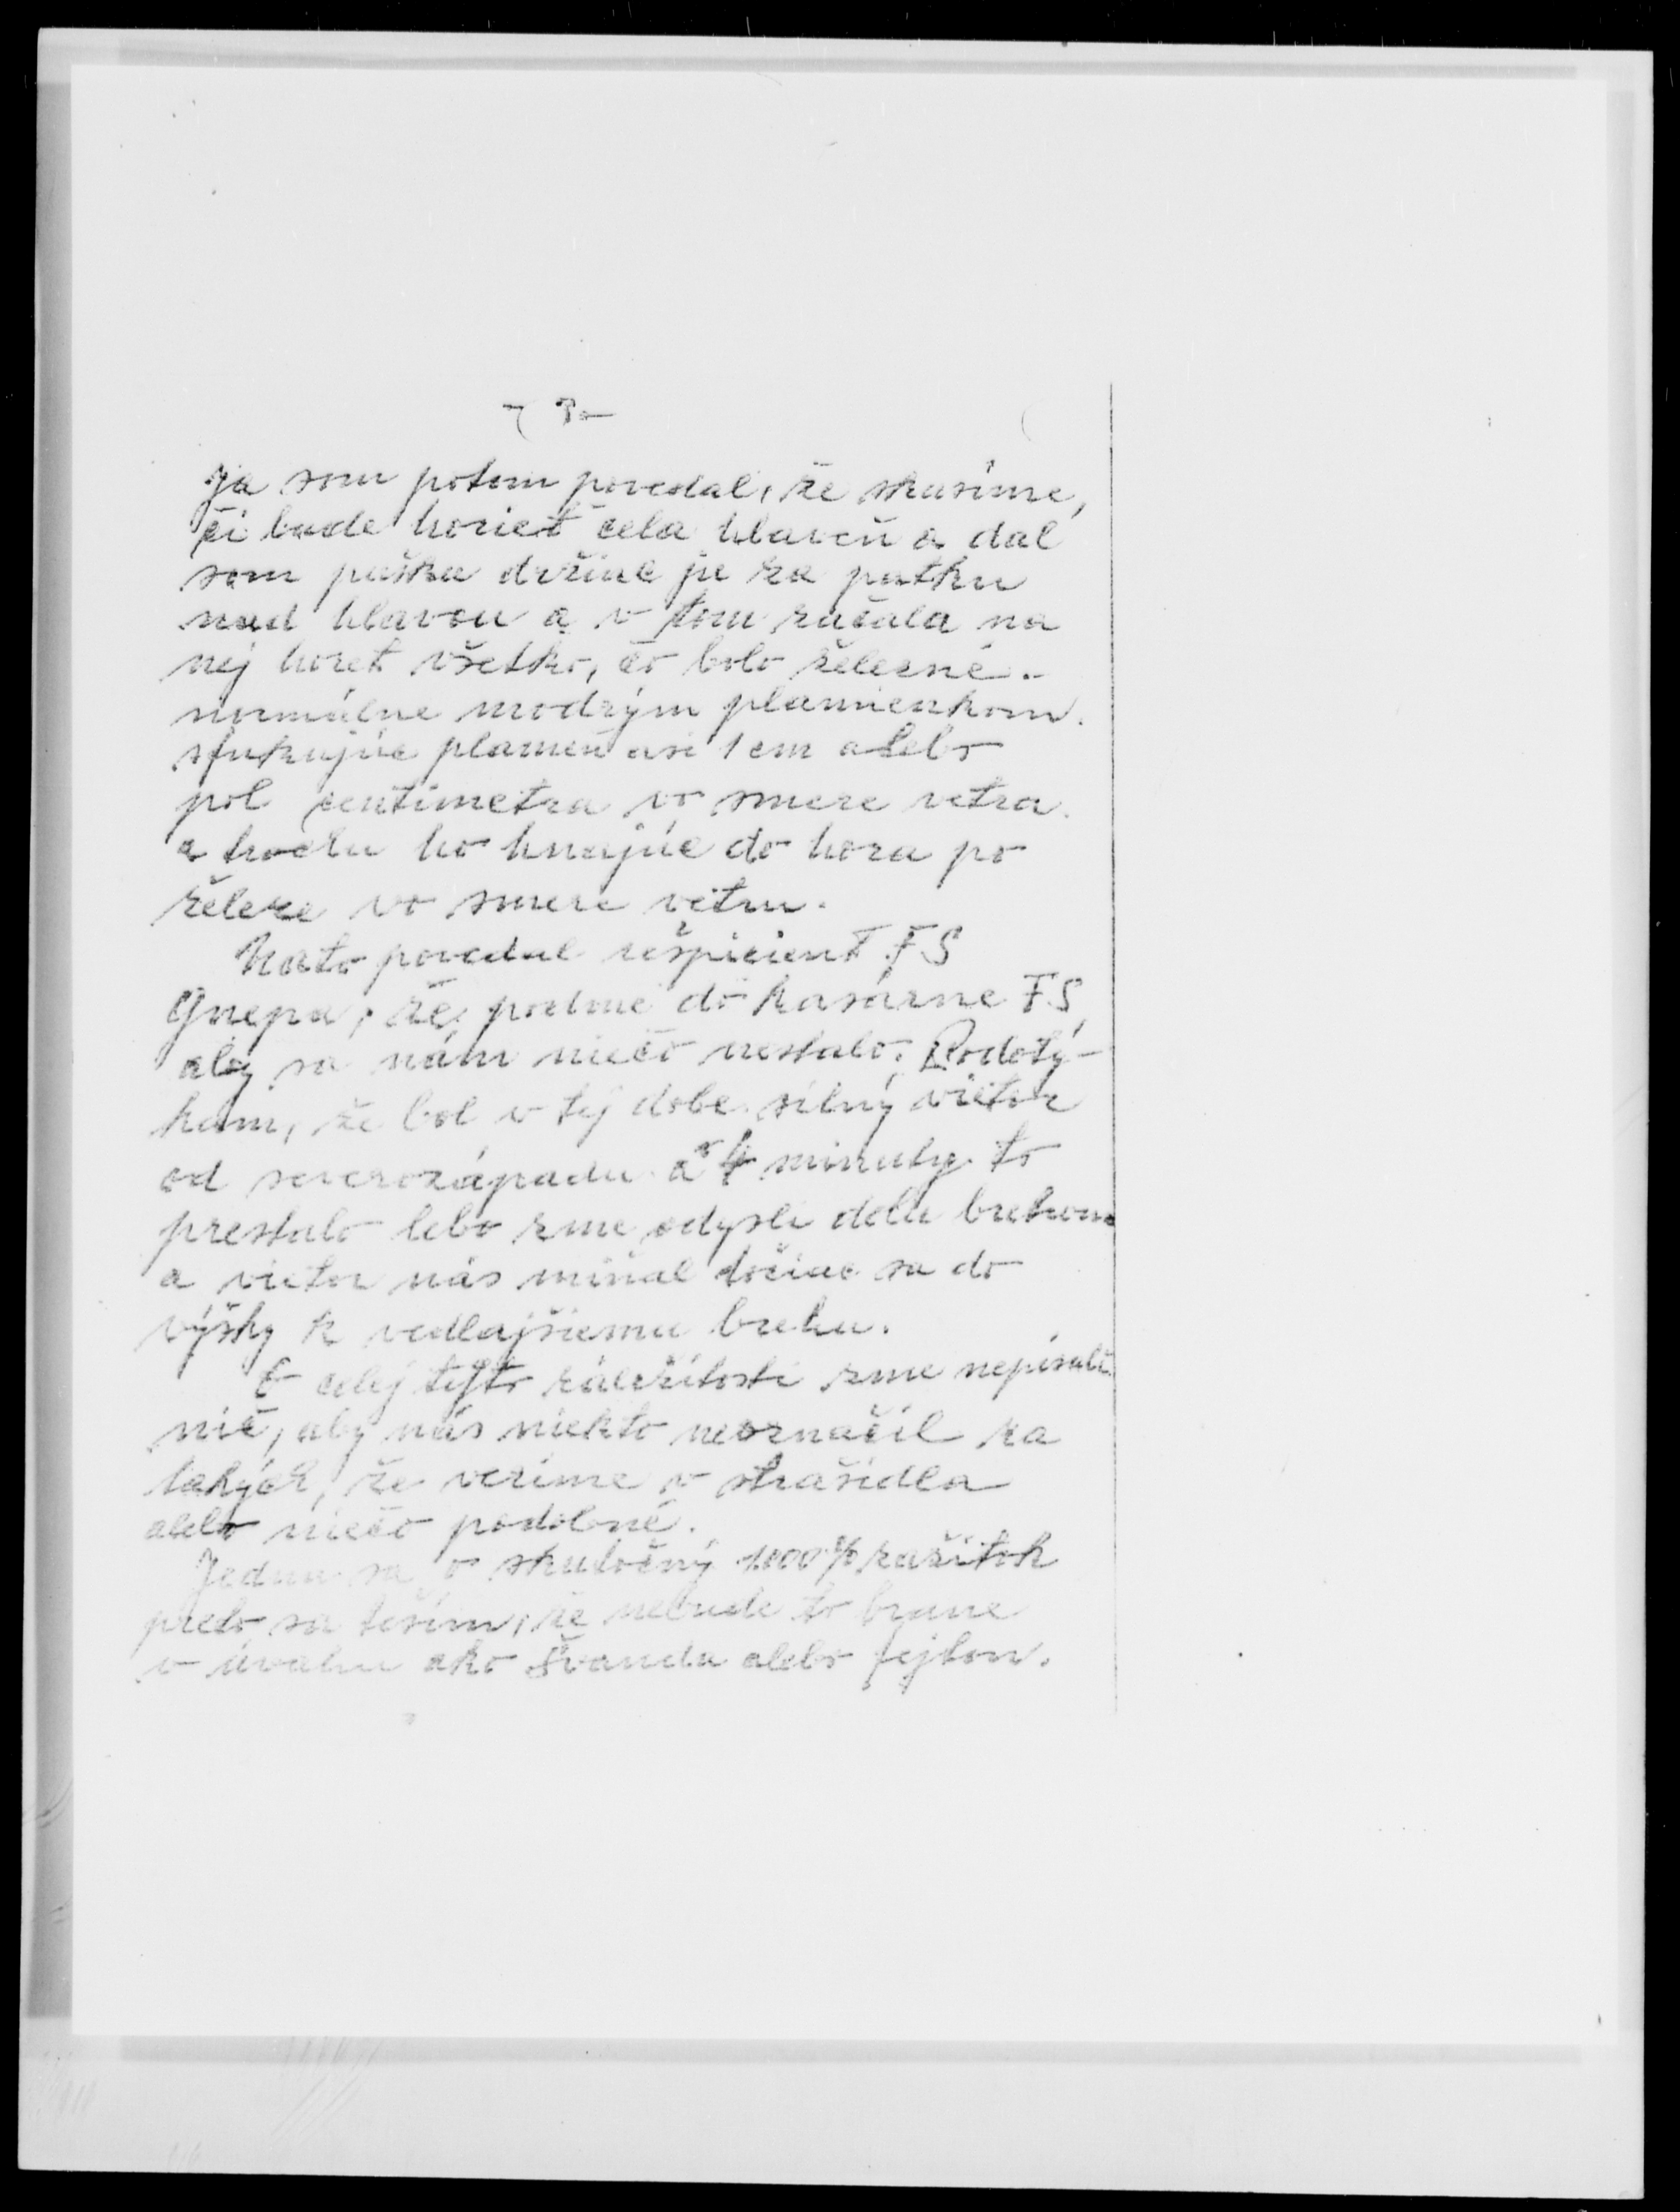 Ja som potom povedal, že skusíme,
či bude horieť cela hlaveň a dal
som pušku držiac ju za patku
nad hlavou a v tom začala na
nej horeť všetko, čo bolo železné.
normálne modrým plamienkom.
sfukujúc plameň asi 1 cm alebo
pol centimetra vo smere vetra.
a trochu ho hnajúc do hora po
železe vo smere vetru.
Nato povedal rešpicient FS
Gnepa, že, podme do kasárne FS,
aby sa nám niečo nestalo. Podotý-
kam, že bol v tej dobe silný vietor
od severozápadu a 4 minuty to
prestalo lebo zme odyšli dolu brehom
a vietor nás minal točiac sa do
výšky k vedlajšiemu brehu.
O celej tejto záležitosti zme nepísali
nič, aby nás niekto neoznačil za
takých, že veríme v strašidla
alebo niečo podobné.
Jedna sa o skutočný 1000% zažitok
preto sa teším, že nebude to brane
v úvahu ako švanda alebo fejton.